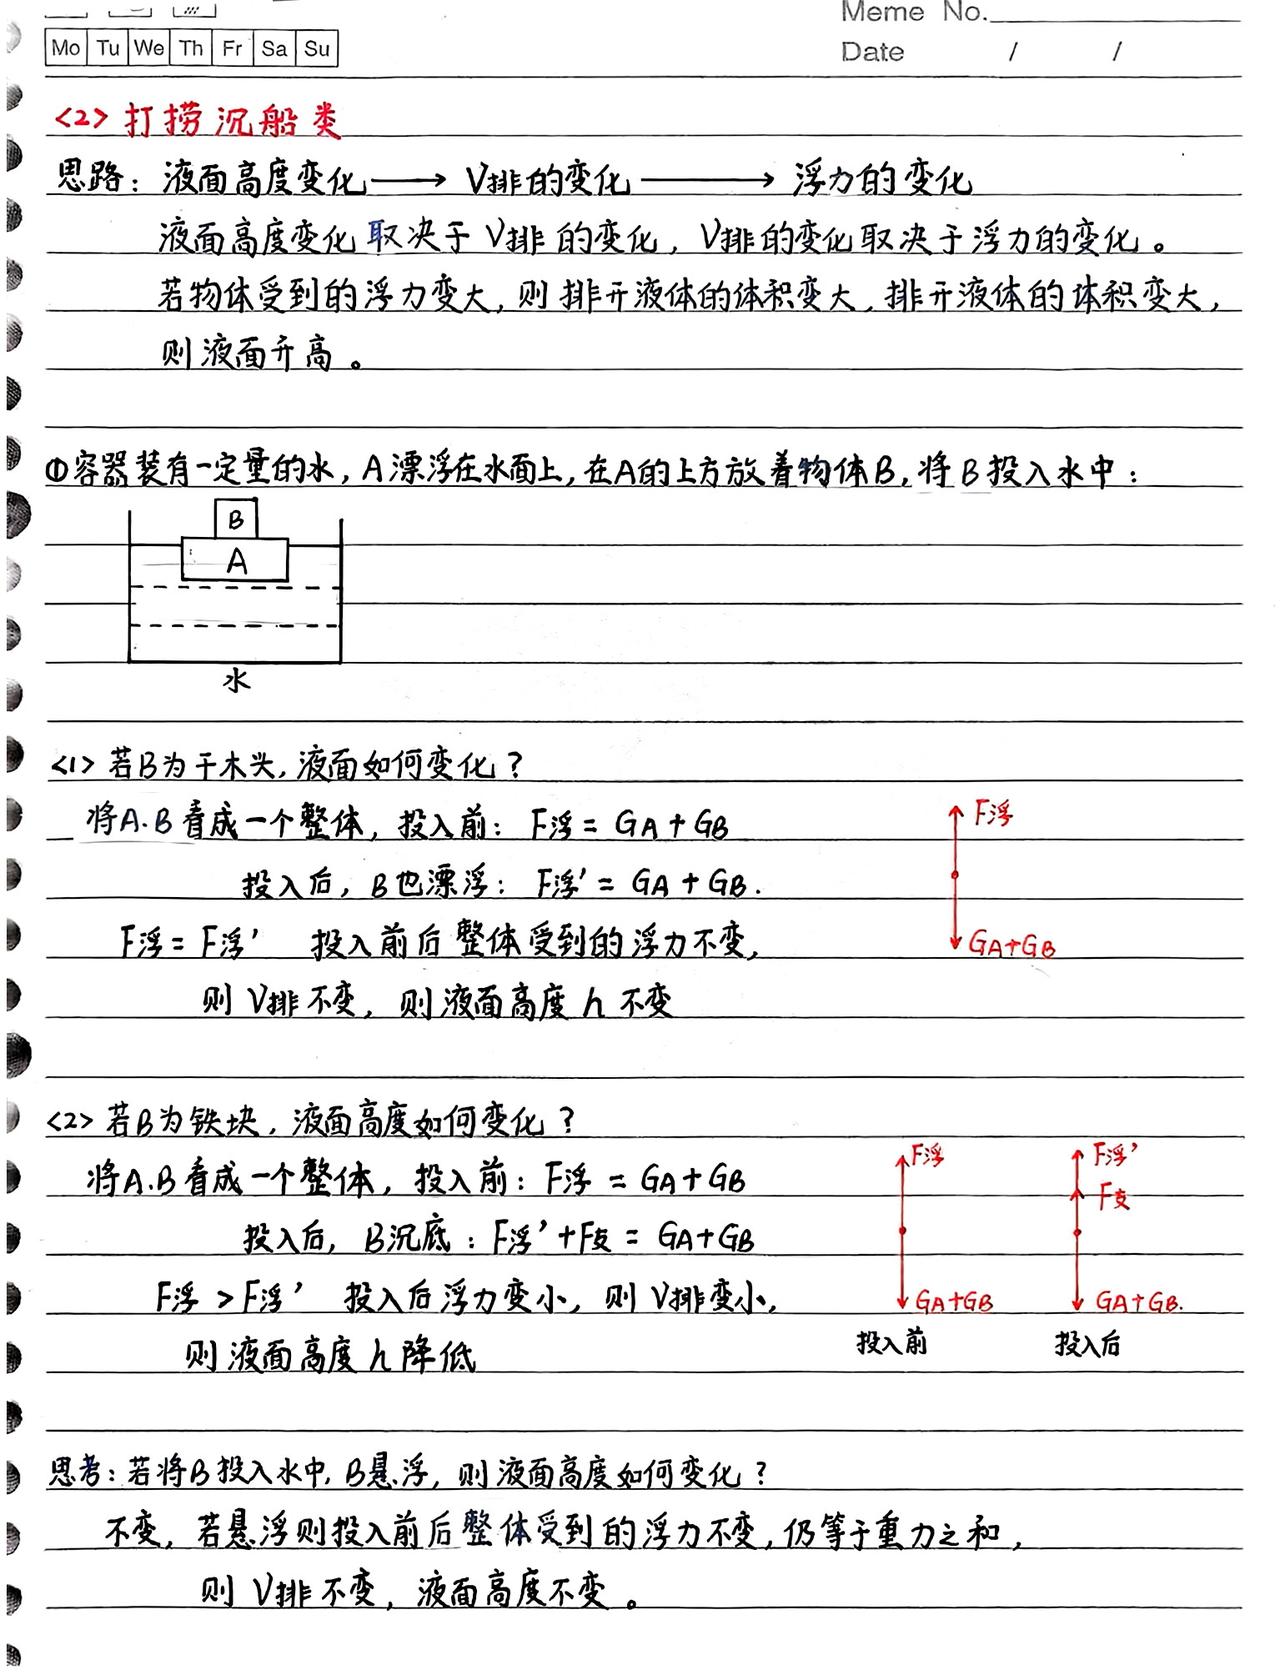 Meme No.
Mo Tu We Th Fr Sa Su
Date / /
<2> 打捞沉船类
思路：液面高度变化 → V排的变化 → 浮力的变化
液面高度变化取决于V排的变化，V排的变化取决于浮力的变化。
若物体受到的浮力变大，则排开液体的体积变大，排开液体的体积变大，
则液面升高。
①容器装有一定量的水，A漂浮在水面上，在A的上方放着物体B，将B投入水中：
B
A
水
<1> 若B为干木头，液面如何变化？
将A.B看成一个整体，投入前：F浮 = GA + GB
投入后，B也漂浮：F浮' = GA + GB.
F浮 = F浮' 投入前后整体受到的浮力不变，
则V排不变，则液面高度h不变
F浮
GA+GB
<2> 若B为铁块，液面高度如何变化？
将A.B看成一个整体，投入前：F浮 = GA + GB
投入后，B沉底：F浮' + F支 = GA+GB
F浮 > F浮' 投入后浮力变小，则V排变小，
则液面高度h降低
F浮
GA+GB
投入前
F浮'
F支
GA+GB.
投入后
思考：若将B投入水中，B悬浮，则液面高度如何变化？
不变，若悬浮则投入前后整体受到的浮力不变，仍等于重力之和，
则V排不变，液面高度不变。